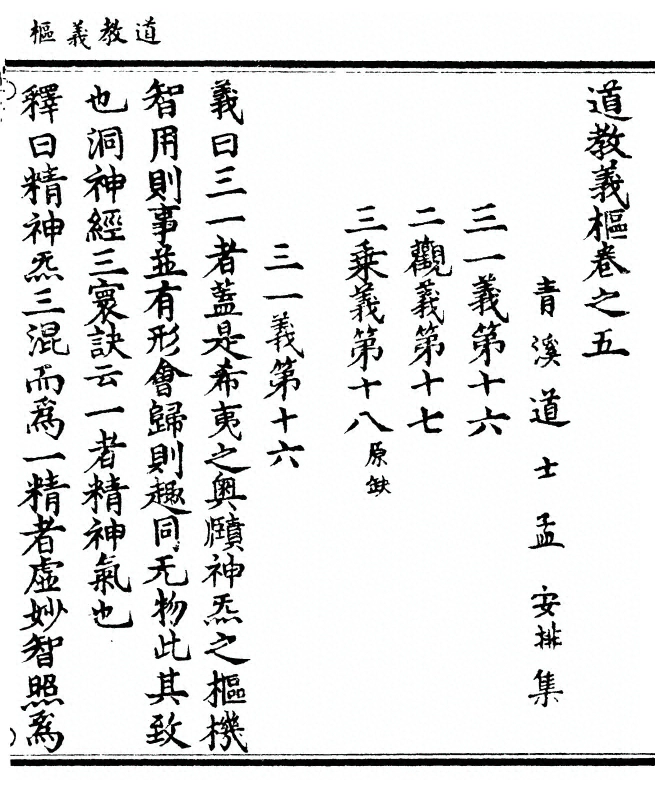 道教義樞
道教義樞卷之五
青溪道士孟安排集
三一義第十六
二觀義第十七
三乗義第十八原缺
三一義第十六
義曰三一者蓋是希夷之奥賾神炁之樞機
智用則事並有形會歸則趣同无物此其致
也洞神經三寰訣云一者精神氣也
釋曰精神炁三混而爲一精者虛妙智照爲